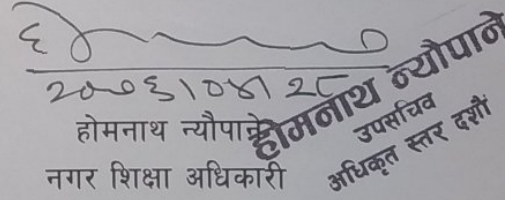 होमनाथ न्यौपाने
नगर शिक्षा अधिकारी
होमनाथ न्यौपाने
उपसचिव
अधिकृत स्तर दशौं